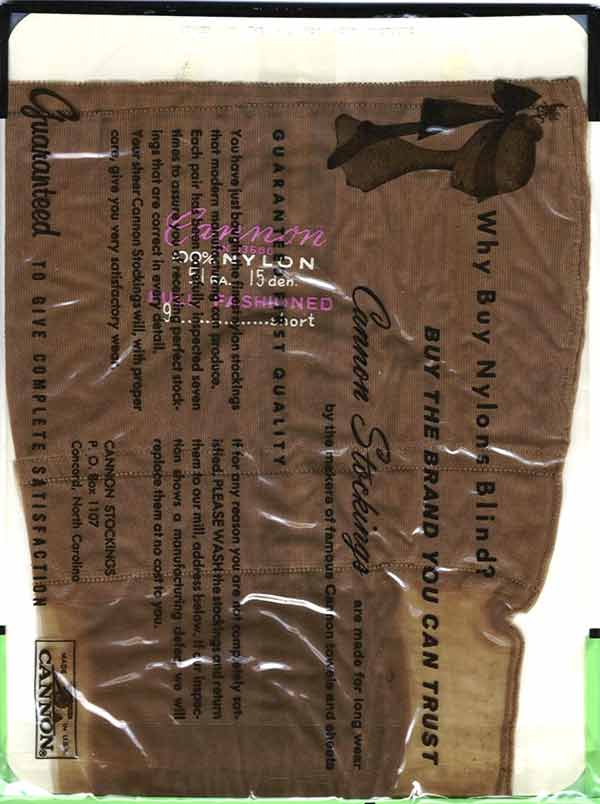 Why Buy Nylons Blind?
BUY THE BRAND YOU CAN TRUST
Cannon Stockings are made for long wear
by the makers of famous Cannon towels and sheets
GUARANTEED FIRST QUALITY
You have just bought the finest nylon stockings
that modern manufacturers can produce.
Each pair has been carefully inspected seven
times to assure your receiving perfect stock-
ings that are correct in every detail.
Your sheer Cannon Stockings will, with proper
care, give you very satisfactory wear.
If for any reason you are not completely sat-
isfied, PLEASE WASH the stockings and return
them to our mill, address below. If our inspec-
tion shows a manufacturing defect we will
replace them at no cost to you.
CANNON STOCKINGS
P. O. Box 1107
Concord, North Carolina
Guaranteed TO GIVE COMPLETE SATISFACTION
MADE IN U.S.A.
CANNON®
Cannon
100% NYLON
51 GA. 15 den.
FULL FASHIONED
9 short